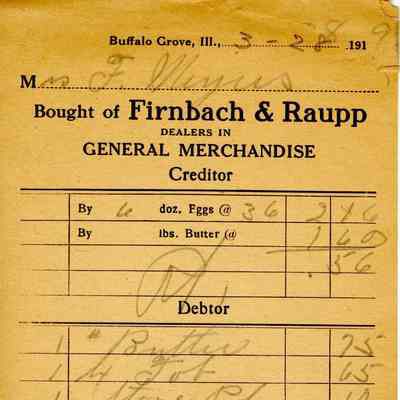 Buffalo Grove, Ill., 3-28 1919
Mrs F. Meyers
Bought of Firnbach & Raupp
DEALERS IN
GENERAL MERCHANDISE
Creditor
By 6 doz. Eggs @ 36 2 16
By lbs. Butter @ 1 60
.56
Debtor
1 " Butter 75
1 65
1